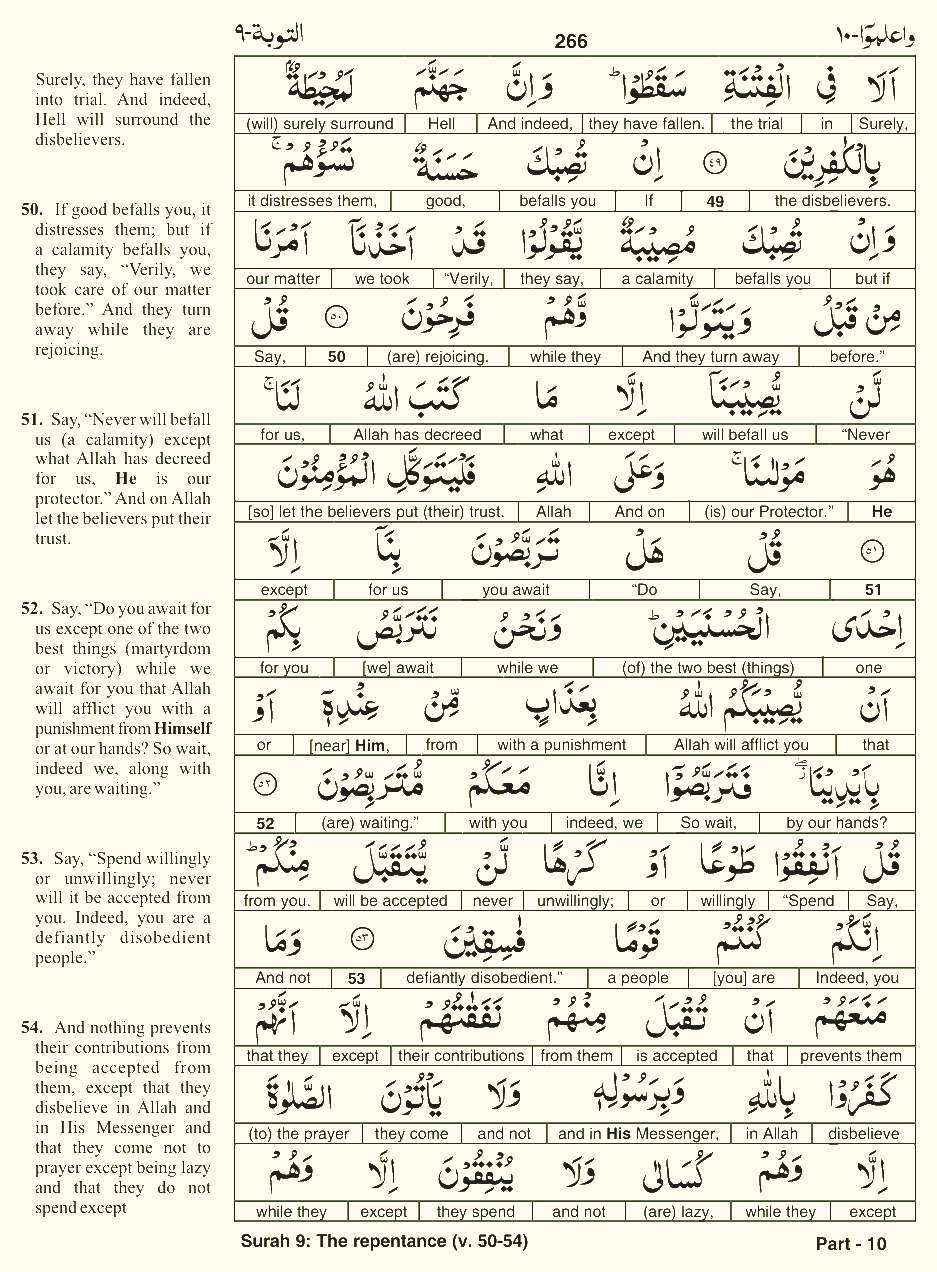 التوبة-٩
266
واعلموٓا-١٠
Surely, they have fallen
into trial. And indeed,
Hell will surround the
disbelievers.
50. If good befalls you, it
distresses them; but if
a calamity befalls you,
they say, “Verily, we
took care of our matter
before.” And they turn
away while they are
rejoicing.
51. Say, “Never will befall
us (a calamity) except
what Allah has decreed
for us, He is our
protector.” And on Allah
let the believers put their
trust.
52. Say, “Do you await for
us except one of the two
best things (martyrdom
or victory) while we
await for you that Allah
will afflict you with a
punishment from Himself
or at our hands? So wait,
indeed we, along with
you, are waiting.”
53. Say, “Spend willingly
or unwillingly; never
will it be accepted from
you. Indeed, you are a
defiantly disobedient
people.”
54. And nothing prevents
their contributions from
being accepted from
them, except that they
disbelieve in Allah and
in His Messenger and
that they come not to
prayer except being lazy
and that they do not
spend except
اَلَا فِى الْفِتْنَةِ سَقَطُوْا ؕ وَاِنَّ جَهَنَّمَ لَمُحِيْطَةٌۢ
(will) surely surround | Hell | And indeed, | they have fallen. | the trial | in | Surely,
بِالْكٰفِرِيْنَ ٤٩ اِنْ تُصِبْكَ حَسَنَةٌ تَسُؤْهُمْ ۚ
it distresses them, | good, | befalls you | If | 49 | the disbelievers.
وَاِنْ تُصِبْكَ مُصِيْبَةٌ يَّقُوْلُوْا قَدْ اَخَذْنَاۤ اَمْرَنَا
our matter | we took | “Verily, | they say, | a calamity | befalls you | but if
مِنْ قَبْلُ وَيَتَوَلَّوْا وَّهُمْ فَرِحُوْنَ ٥٠ قُلْ
Say, | 50 | (are) rejoicing. | while they | And they turn away | before.”
لَّنْ يُّصِيْبَنَاۤ اِلَّا مَا كَتَبَ اللّٰهُ لَنَا ۚ
for us, | Allah has decreed | what | except | will befall us | “Never
هُوَ مَوْلٰىنَا ۚ وَعَلَى اللّٰهِ فَلْيَتَوَكَّلِ الْمُؤْمِنُوْنَ
[so] let the believers put (their) trust. | Allah | And on | (is) our Protector.” | He
٥١ قُلْ هَلْ تَرَبَّصُوْنَ بِنَاۤ اِلَّاۤ
except | for us | you await | “Do | Say, | 51
اِحْدَى الْحُسْنَيَيْنِ ؕ وَنَحْنُ نَتَرَبَّصُ بِكُمْ
for you | [we] await | while we | (of) the two best (things) | one
اَنْ يُّصِيْبَكُمُ اللّٰهُ بِعَذَابٍ مِّنْ عِنْدِهٖۤ اَوْ
or | [near] Him, | from | with a punishment | Allah will afflict you | that
بِاَيْدِيْنَا ۖ فَتَرَبَّصُوْۤا اِنَّا مَعَكُمْ مُّتَرَبِّصُوْنَ ٥٢
52 | (are) waiting.” | with you | indeed, we | So wait, | by our hands?
قُلْ اَنْفِقُوْا طَوْعًا اَوْ كَرْهًا لَّنْ يُّتَقَبَّلَ مِنْكُمْ ؕ
from you. | will be accepted | never | unwillingly; | or | willingly | “Spend | Say,
اِنَّكُمْ كُنْتُمْ قَوْمًا فٰسِقِيْنَ ٥٣ وَمَا
And not | 53 | defiantly disobedient.” | a people | [you] are | Indeed, you
مَنَعَهُمْ اَنْ تُقْبَلَ مِنْهُمْ نَفَقٰتُهُمْ اِلَّاۤ اَنَّهُمْ
that they | except | their contributions | from them | is accepted | that | prevents them
كَفَرُوْا بِاللّٰهِ وَبِرَسُوْلِهٖ وَلَا يَاْتُوْنَ الصَّلٰوةَ
(to) the prayer | they come | and not | and in His Messenger, | in Allah | disbelieve
اِلَّا وَهُمْ كُسَالٰى وَلَا يُنْفِقُوْنَ اِلَّا وَهُمْ
while they | except | they spend | and not | (are) lazy, | while they | except
Surah 9: The repentance (v. 50-54)
Part - 10